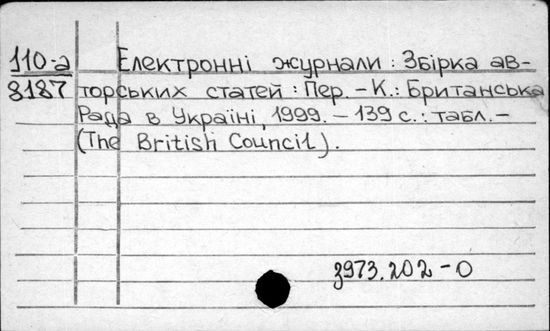 110-а Електронні журнали : Збірка ав-
8187 торських статей : Пер. – К.: Британська
Рада в Україні, 1999. – 139 с. : табл. –
(The British Council).
з973.202 – 0